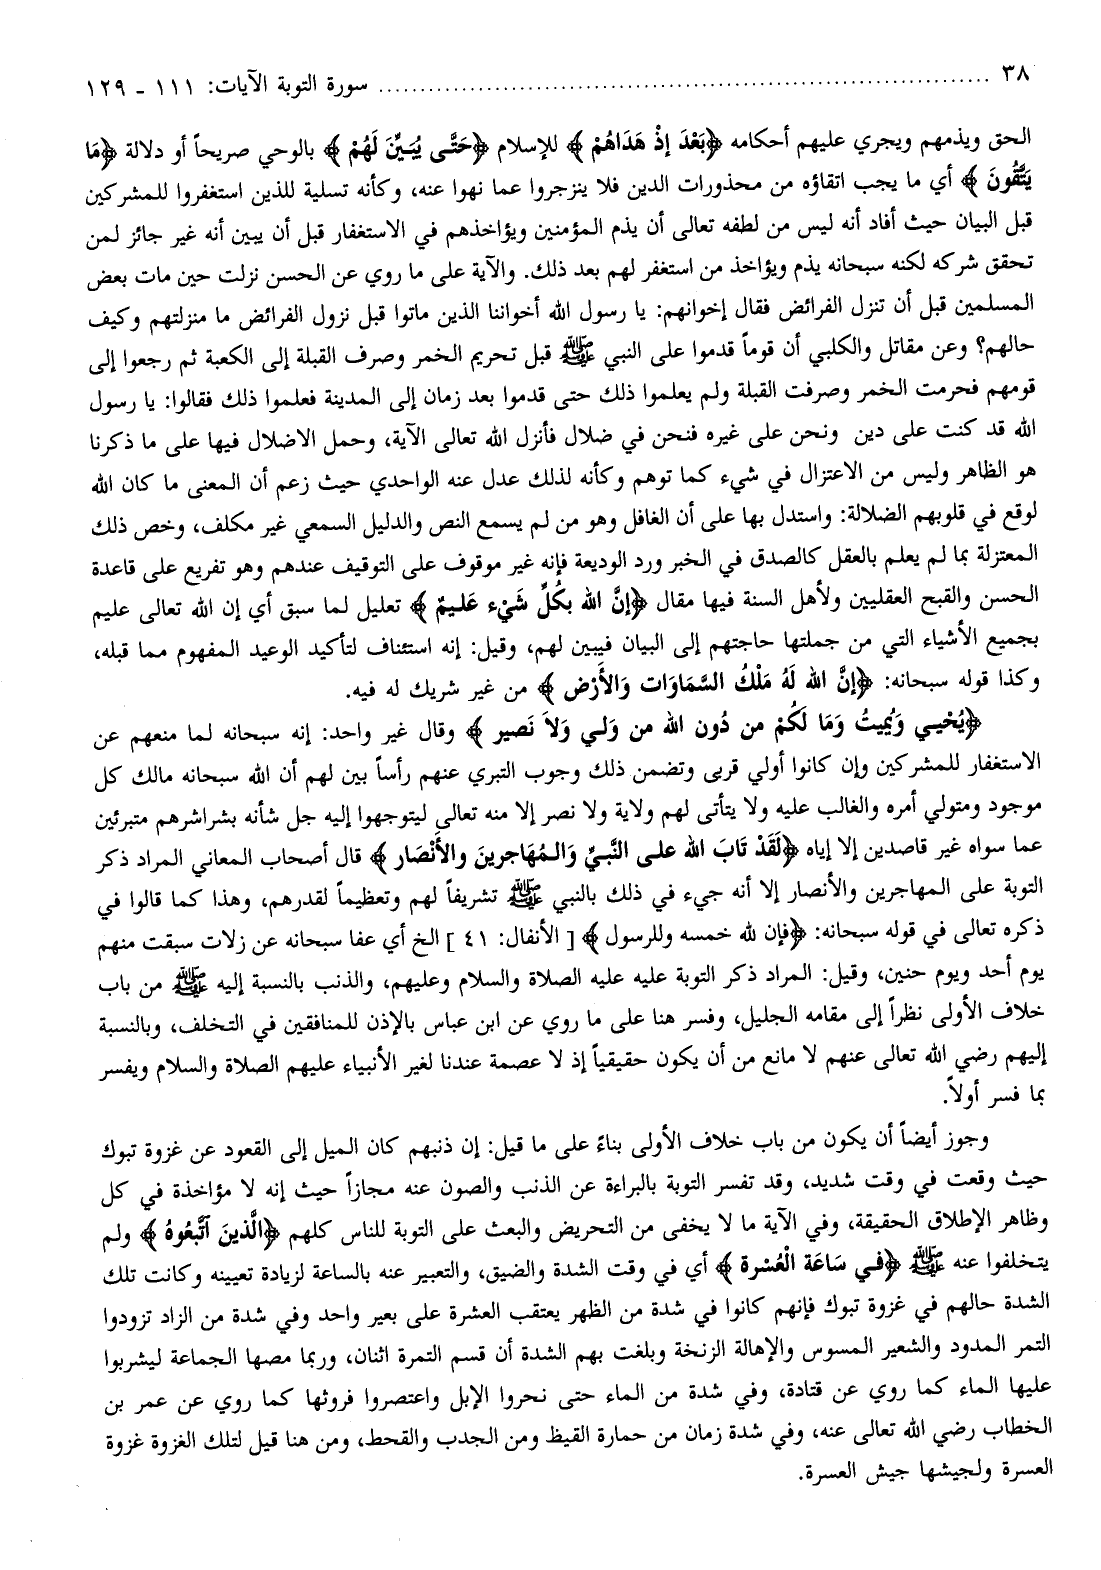 ٣٨ ........................................ سورة التوبة الآيات: ١١١ - ١٢٩
الحق ويذمهم ويجري عليهم أحكامه ﴿بَعْدَ إِذْ هَدَاهُمْ﴾ للإسلام ﴿حَتَّى يُبَيِّنَ لَهُمْ﴾ بالوحي صريحاً أو دلالة ﴿مَا
يَتَّقُونَ﴾ أي ما يجب اتقاؤه من محذورات الدين فلا ينزجروا عما نهوا عنه، وكأنه تسلية للذين استغفروا للمشركين
قبل البيان حيث أفاد أنه ليس من لطفه تعالى أن يذم المؤمنين ويؤاخذهم في الاستغفار قبل أن يبين أنه غير جائز لمن
تحقق شركه لكنه سبحانه يذم ويؤاخذ من استغفر لهم بعد ذلك. والآية على ما روي عن الحسن نزلت حين مات بعض
المسلمين قبل أن تنزل الفرائض فقال إخوانهم: يا رسول الله أخواننا الذين ماتوا قبل نزول الفرائض ما منزلتهم وكيف
حالهم؟ وعن مقاتل والكلبي أن قوماً قدموا على النبي ﷺ قبل تحريم الخمر وصرف القبلة إلى الكعبة ثم رجعوا إلى
قومهم فحرمت الخمر وصرفت القبلة ولم يعلموا ذلك حتى قدموا بعد زمان إلى المدينة فعلموا ذلك فقالوا: يا رسول
الله قد كنت على دين ونحن على غيره فنحن في ضلال فأنزل الله تعالى الآية، وحمل الاضلال فيها على ما ذكرنا
هو الظاهر وليس من الاعتزال في شيء كما توهم وكأنه لذلك عدل عنه الواحدي حيث زعم أن المعنى ما كان الله
لوقع في قلوبهم الضلالة: واستدل بها على أن الغافل وهو من لم يسمع النص والدليل السمعي غير مكلف، وخص ذلك
المعتزلة بما لم يعلم بالعقل كالصدق في الخبر ورد الوديعة فإنه غير موقوف على التوقيف عندهم وهو تفريع على قاعدة
الحسن والقبح العقليين ولأهل السنة فيها مقال ﴿إِنَّ الله بِكُلِّ شَيْءٍ عَلِيمٌ﴾ تعليل لما سبق أي إن الله تعالى عليم
بجميع الأشياء التي من جملتها حاجتهم إلى البيان فيبين لهم، وقيل: إنه استئناف لتأكيد الوعيد المفهوم مما قبله،
وكذا قوله سبحانه: ﴿إِنَّ الله لَهُ مَلْكُ السَّمَاوَات وَالأَرْض﴾ من غير شريك له فيه.
﴿يُحْيـي وَيُمِيتُ وَمَا لَكُمْ من دُون الله من وَلـي وَلاَ نَصير﴾ وقال غير واحد: إنه سبحانه لما منعهم عن
الاستغفار للمشركين وإن كانوا أولي قربى وتضمن ذلك وجوب التبري عنهم رأساً بين لهم أن الله سبحانه مالك كل
موجود ومتولي أمره والغالب عليه ولا يتأتى لهم ولاية ولا نصر إلا منه تعالى ليتوجهوا إليه جل شأنه بشراشرهم متبرئين
عما سواه غير قاصدين إلا إياه ﴿لَقَدْ تَابَ الله علـى النَّبيِّ وَالـمُهَاجرينَ والأَنْصَار﴾ قال أصحاب المعاني المراد ذكر
التوبة على المهاجرين والأنصار إلا أنه جيء في ذلك بالنبي ﷺ تشريفاً لهم وتعظيماً لقدرهم، وهذا كما قالوا في
ذكره تعالى في قوله سبحانه: ﴿فإن لله خمسه وللرسول﴾ [ الأنفال: ٤١ ] الخ أي عفا سبحانه عن زلات سبقت منهم
يوم أحد ويوم حنين، وقيل: المراد ذكر التوبة عليه عليه الصلاة والسلام وعليهم، والذنب بالنسبة إليه ﷺ من باب
خلاف الأولى نظراً إلى مقامه الجليل، وفسر هنا على ما روي عن ابن عباس بالإذن للمنافقين في التخلف، وبالنسبة
إليهم رضي الله تعالى عنهم لا مانع من أن يكون حقيقياً إذ لا عصمة عندنا لغير الأنبياء عليهم الصلاة والسلام ويفسر
بما فسر أولاً.
وجوز أيضاً أن يكون من باب خلاف الأولى بناءً على ما قيل: إن ذنبهم كان الميل إلى القعود عن غزوة تبوك
حيث وقعت في وقت شديد، وقد تفسر التوبة بالبراءة عن الذنب والصون عنه مجازاً حيث إنه لا مؤاخذة في كل
وظاهر الإطلاق الحقيقة، وفي الآية ما لا يخفى من التحريض والبعث على التوبة للناس كلهم ﴿الَّذينَ ٱتَّبَعُوهُ﴾ ولم
يتخلفوا عنه ﷺ ﴿فـي سَاعَة الْعُسْرة﴾ أي في وقت الشدة والضيق، والتعبير عنه بالساعة لزيادة تعيينه وكانت تلك
الشدة حالهم في غزوة تبوك فإنهم كانوا في شدة من الظهر يعتقب العشرة على بعير واحد وفي شدة من الزاد تزودوا
التمر المدود والشعير المسوس والإهالة الزنخة وبلغت بهم الشدة أن قسم التمرة اثنان، وربما مصها الجماعة ليشربوا
عليها الماء كما روي عن قتادة، وفي شدة من الماء حتى نحروا الإبل واعتصروا فروثها كما روي عن عمر بن
الخطاب رضي الله تعالى عنه، وفي شدة زمان من حمارة القيظ ومن الجدب والقحط، ومن هنا قيل لتلك الغزوة غزوة
العسرة ولجيشها جيش العسرة.